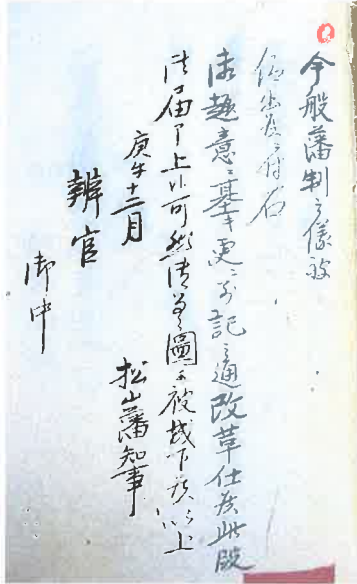 今般藩制之儀被
仰出候ニ付右
御趣意ニ基キ更ニ別記之通改革仕候此段
御届申上候可然御差圖被成下候以上
庚午十二月
松山藩知事
辨官
御中